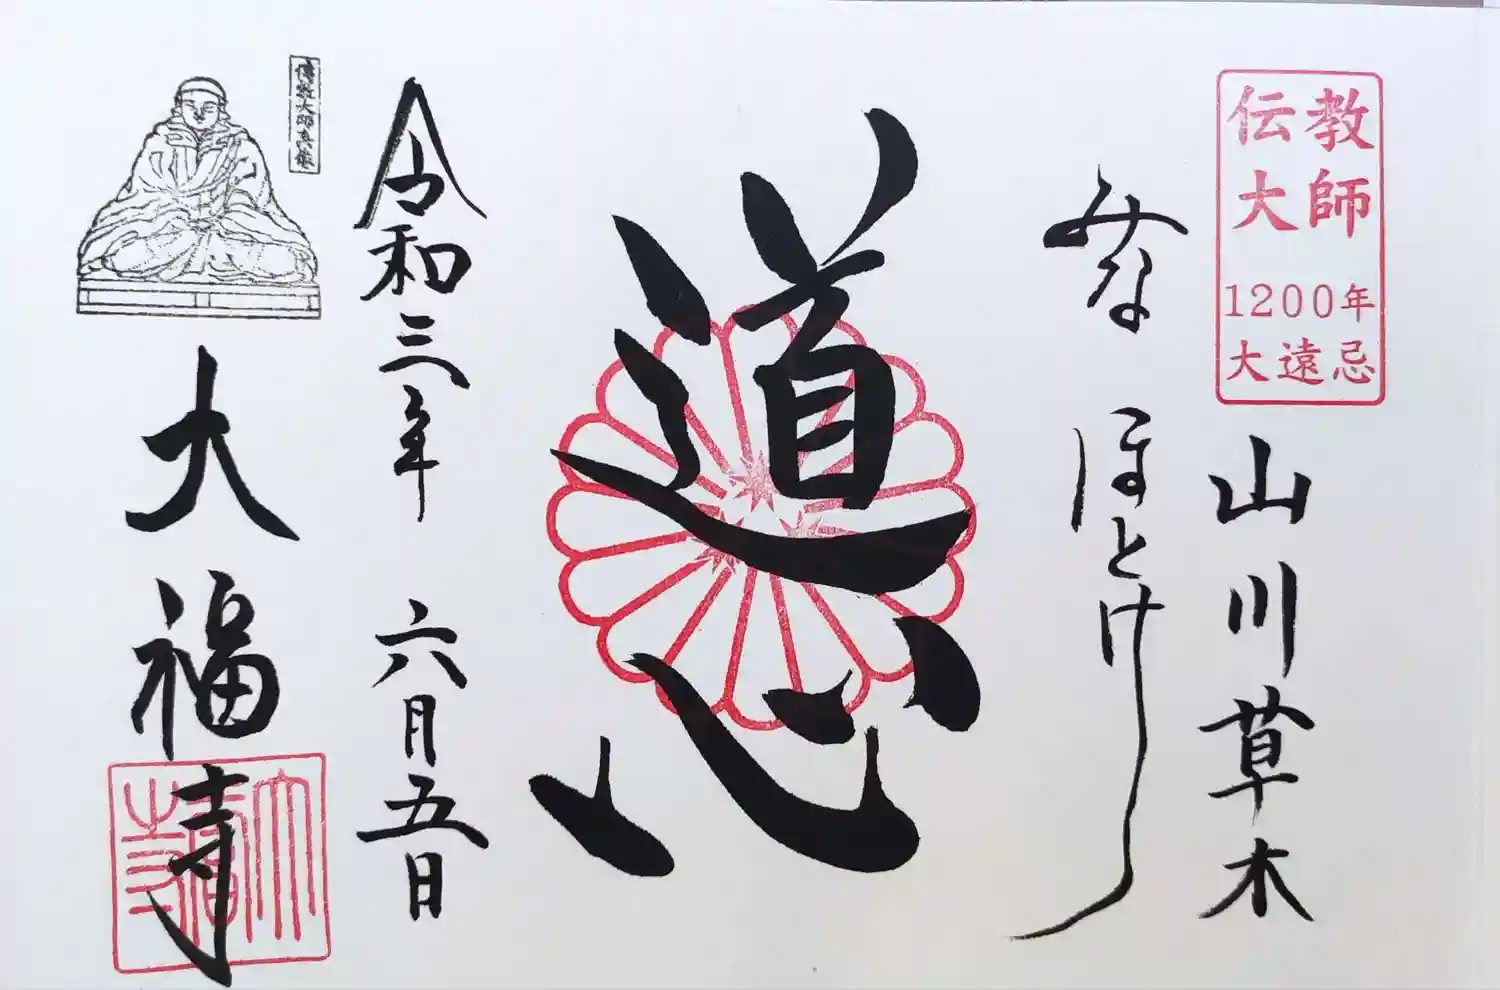 伝教
大師
1200年
大遠忌
山川草木
みなほとけ
道心
令和三年 六月五日
傳教大師真像
大福寺
大福寺